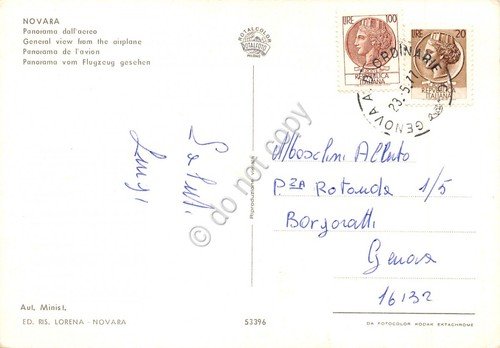 NOVARA
Panorama dall'aereo
General view from the airplane
Panorama de l'avion
Panorama vom Flugzeug gesehen
ROTALCOLOR
ROTALFOTO
MILANO
LIRE 100
REPUBBLICA
ITALIANA
LIRE 20
REPUBBLICA
ITALIANA
GENOVA A.D. ORDINARIE
23.5.77
Saluti
Luigi
do not copy
Alberto
Pza Rotonda 1/5
Borgoratti
Genova
16132
Aut. Minist.
ED. RIS. LORENA - NOVARA
53396
DA FOTOCOLOR KODAK EKTACHROME